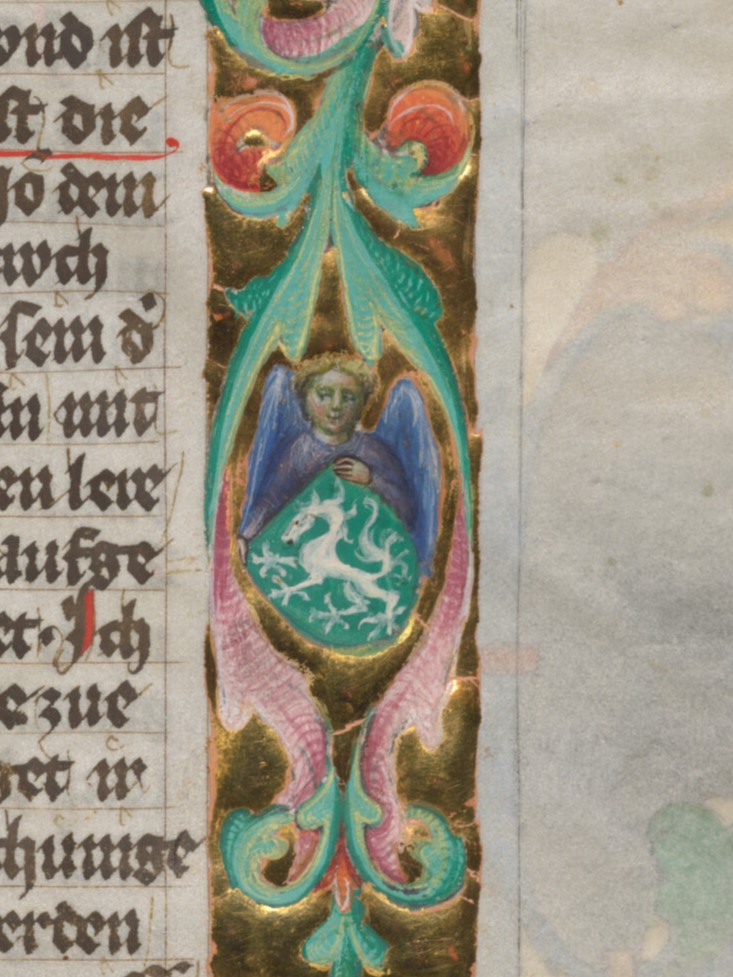 vnd ist
ist die
dem
awch
sein d̕
in mit
en lere
aufge
et · Ich
e zue
get in
chunige
erden